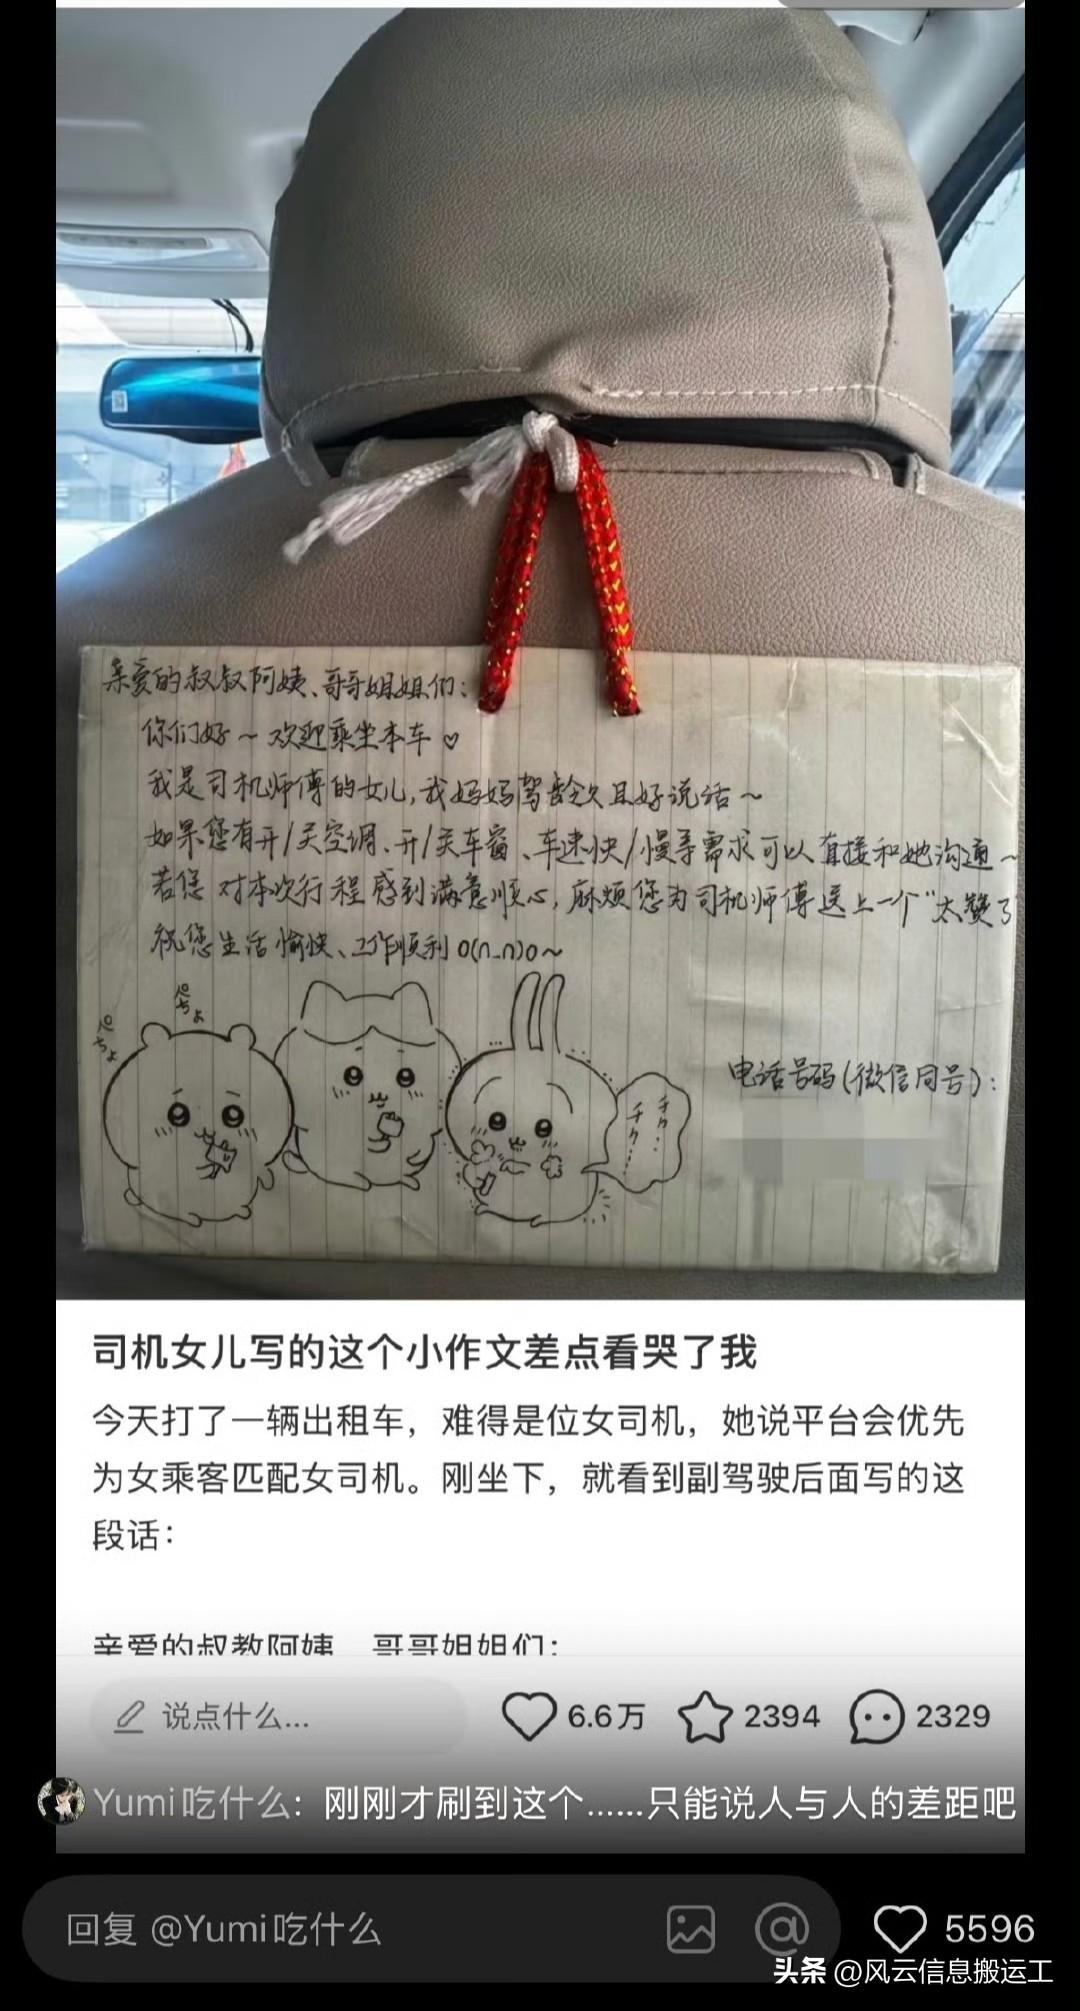 亲爱的叔叔阿姨、哥哥姐姐们:
你们好~欢迎乘坐本车♡
我是司机师傅的女儿,我妈妈驾龄久且好说话~
如果您有开/关空调、开/关车窗、车速快/慢等需求可以直接和她沟通~
若您对本次行程感到满意顺心,麻烦您为司机师傅送上一个"太赞了
祝您生活愉快、工作顺利o(n_n)o~
ぺちょ
ぺちょ
チク…
チク……
电话号码(微信同号):
司机女儿写的这个小作文差点看哭了我
今天打了一辆出租车，难得是位女司机，她说平台会优先
为女乘客匹配女司机。刚坐下，就看到副驾驶后面写的这
段话：
亲爱的叔教阿姨 哥哥姐姐们：
说点什么...
6.6万
2394
2329
Yumi吃什么: 刚刚才刷到这个......只能说人与人的差距吧
回复 @Yumi吃什么
5596
头条 @风云信息搬运工